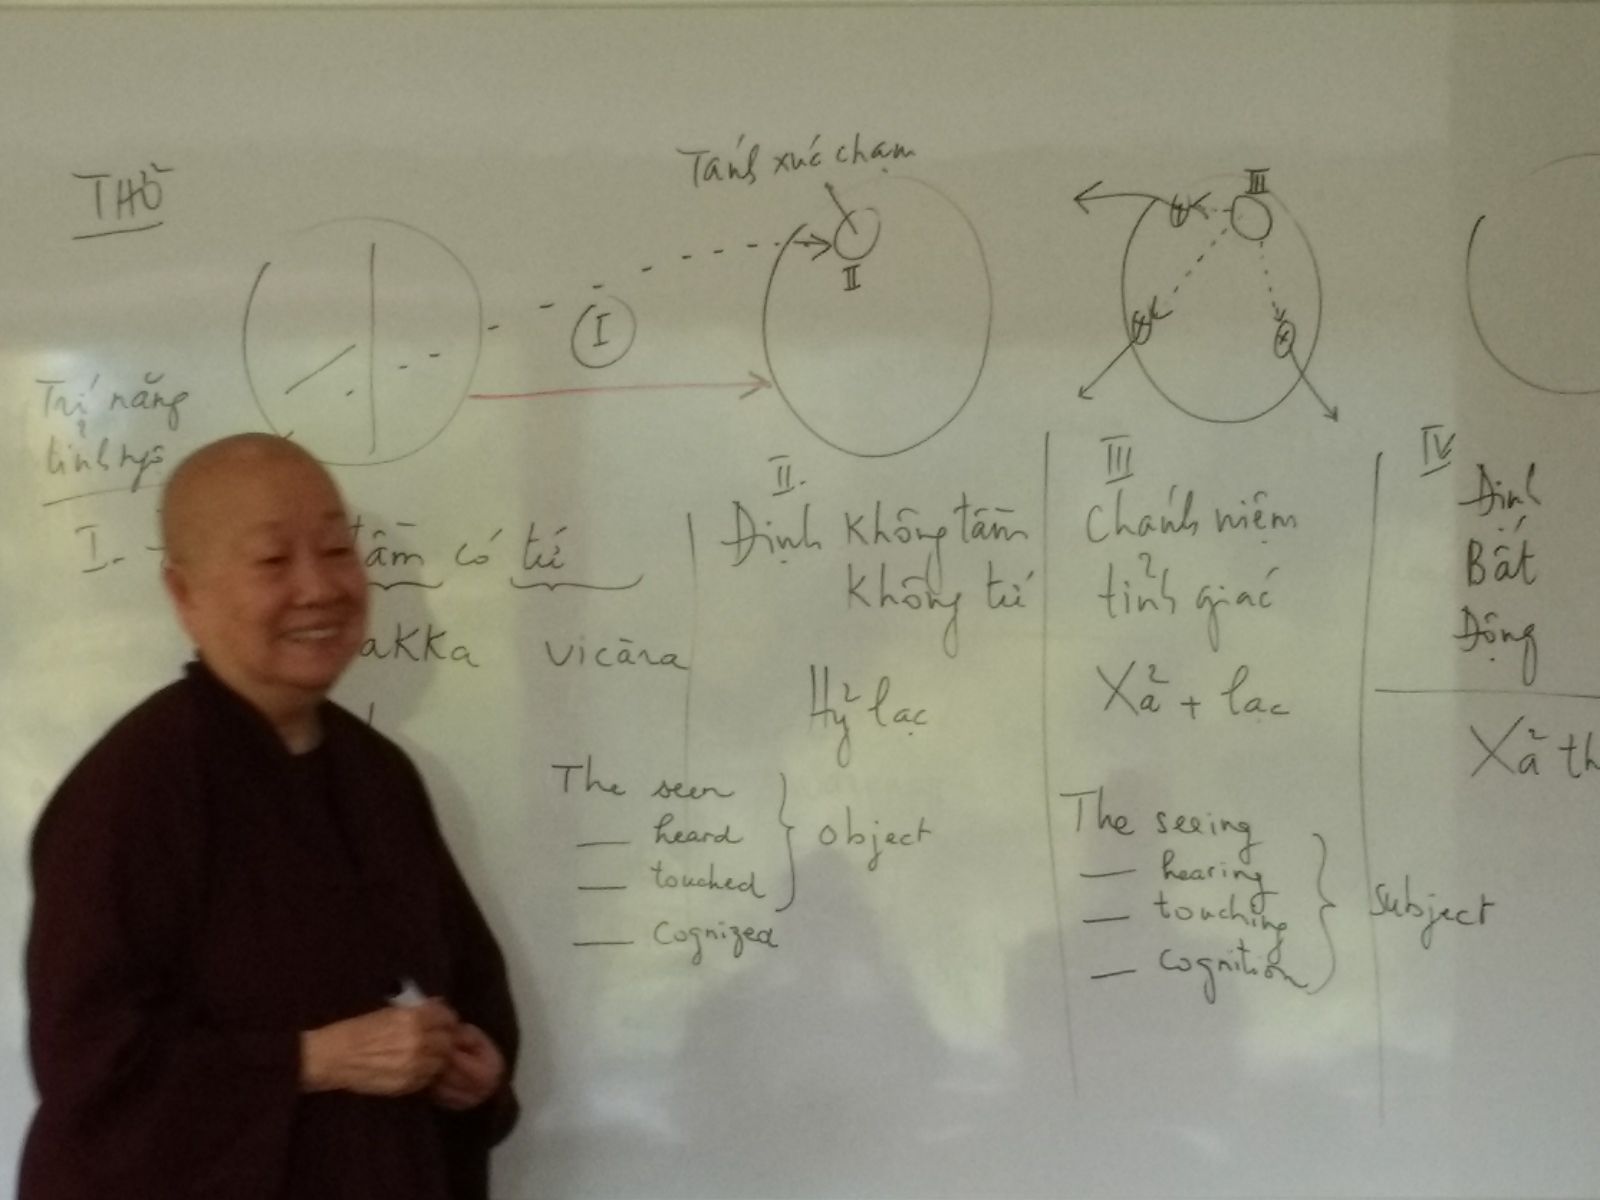 THỞ
Tánh xúc chạm
III
I
II
Trí năng
tỉnh ngộ
I. tầm có tứ
akka vicāra
II.
Định Không tầm
Không tứ
Hỷ lạc
The seen
— heard
— touched
— cognized
object
III
Chánh niệm
tỉnh giác
Xả + lạc
The seeing
— hearing
— touching
— cognition
subject
IV
Định
Bất
Động
Xả th